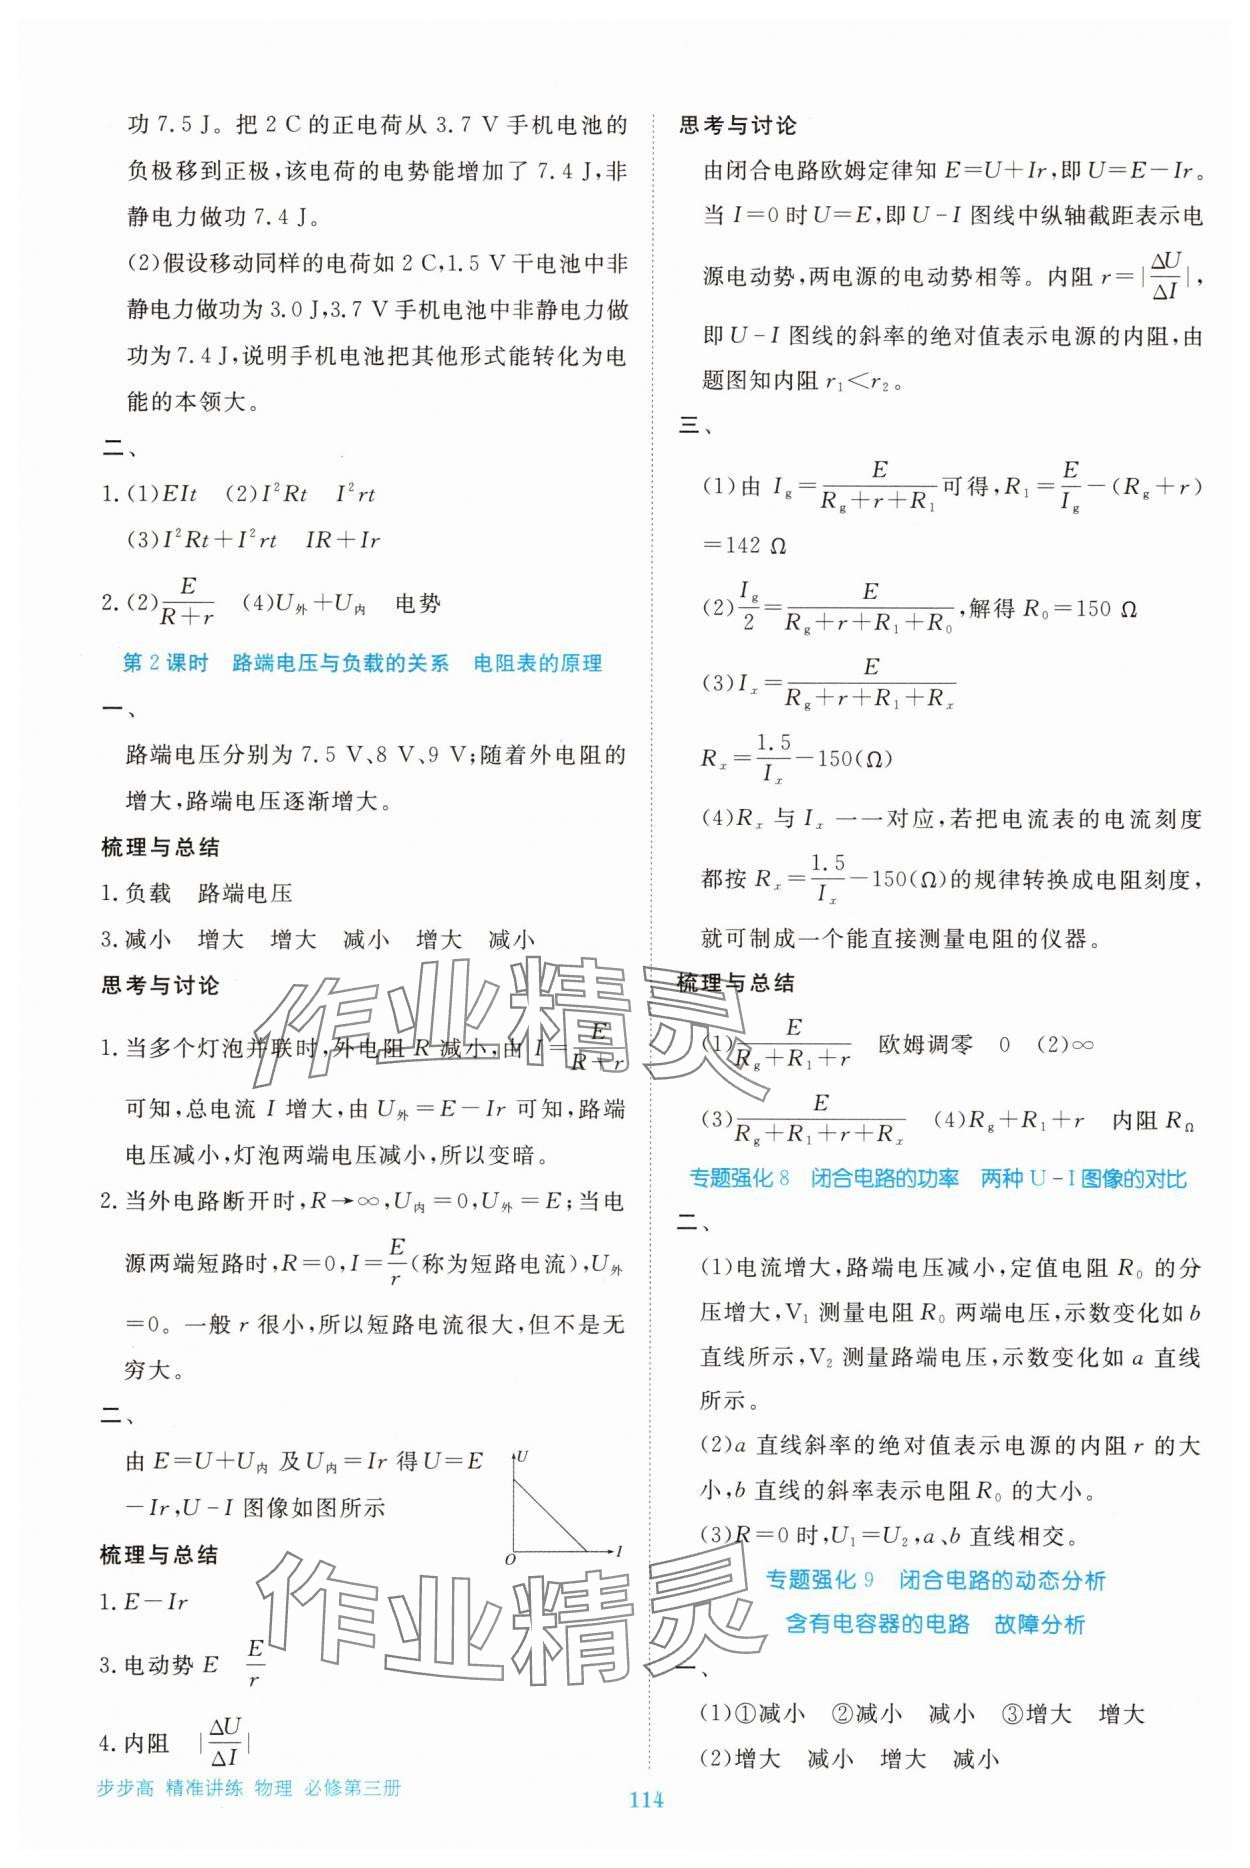 功 7.5 J。把 2 C 的正电荷从 3.7 V 手机电池的
负极移到正极,该电荷的电势能增加了 7.4 J,非
静电力做功 7.4 J。
(2)假设移动同样的电荷如 2 C,1.5 V 干电池中非
静电力做功为 3.0 J,3.7 V 手机电池中非静电力做
功为 7.4 J,说明手机电池把其他形式能转化为电
能的本领大。
二、
1.(1)EIt (2)I²Rt I²rt
(3)I²Rt+I²rt IR+Ir
2.(2)E/(R+r) (4)U外+U内 电势
第 2 课时 路端电压与负载的关系 电阻表的原理
一、
路端电压分别为 7.5 V、8 V、9 V;随着外电阻的
增大,路端电压逐渐增大。
梳理与总结
1.负载 路端电压
3.减小 增大 增大 减小 增大 减小
思考与讨论
1.当多个灯泡并联时,外电阻 R 减小,由 I=E/(R+r)
可知,总电流 I 增大,由 U外=E-Ir 可知,路端
电压减小,灯泡两端电压减小,所以变暗。
2.当外电路断开时,R→∞,U内=0,U外=E;当电
源两端短路时,R=0,I=E/r(称为短路电流),U外
=0。一般 r 很小,所以短路电流很大,但不是无
穷大。
二、
由 E=U+U内 及 U内=Ir 得 U=E
-Ir,U-I 图像如图所示
U
O
I
梳理与总结
1.E-Ir
3.电动势 E E/r
4.内阻 |ΔU/ΔI|
思考与讨论
由闭合电路欧姆定律知 E=U+Ir,即 U=E-Ir。
当 I=0 时 U=E,即 U-I 图线中纵轴截距表示电
源电动势,两电源的电动势相等。内阻 r=|ΔU/ΔI|,
即 U-I 图线的斜率的绝对值表示电源的内阻,由
题图知内阻 r₁<r₂。
三、
(1)由 Ig=E/(Rg+r+R₁)可得,R₁=E/Ig-(Rg+r)
=142 Ω
(2)Ig/2=E/(Rg+r+R₁+R₀),解得 R₀=150 Ω
(3)Iₓ=E/(Rg+r+R₁+Rₓ)
Rₓ=1.5/Iₓ-150(Ω)
(4)Rₓ 与 Iₓ 一一对应,若把电流表的电流刻度
都按 Rₓ=1.5/Iₓ-150(Ω)的规律转换成电阻刻度,
就可制成一个能直接测量电阻的仪器。
梳理与总结
(1)E/(Rg+R₁+r) 欧姆调零 0 (2)∞
(3)E/(Rg+R₁+r+Rₓ) (4)Rg+R₁+r 内阻 RΩ
专题强化 8 闭合电路的功率 两种 U-I 图像的对比
二、
(1)电流增大,路端电压减小,定值电阻 R₀ 的分
压增大,V₁ 测量电阻 R₀ 两端电压,示数变化如 b
直线所示,V₂ 测量路端电压,示数变化如 a 直线
所示。
(2)a 直线斜率的绝对值表示电源的内阻 r 的大
小,b 直线的斜率表示电阻 R₀ 的大小。
(3)R=0 时,U₁=U₂,a、b 直线相交。
专题强化 9 闭合电路的动态分析
含有电容器的电路 故障分析
一、
(1)①减小 ②减小 减小 ③增大 增大
(2)增大 减小 增大 减小
步步高 精准讲练 物理 必修第三册
114
作业精灵
作业精灵